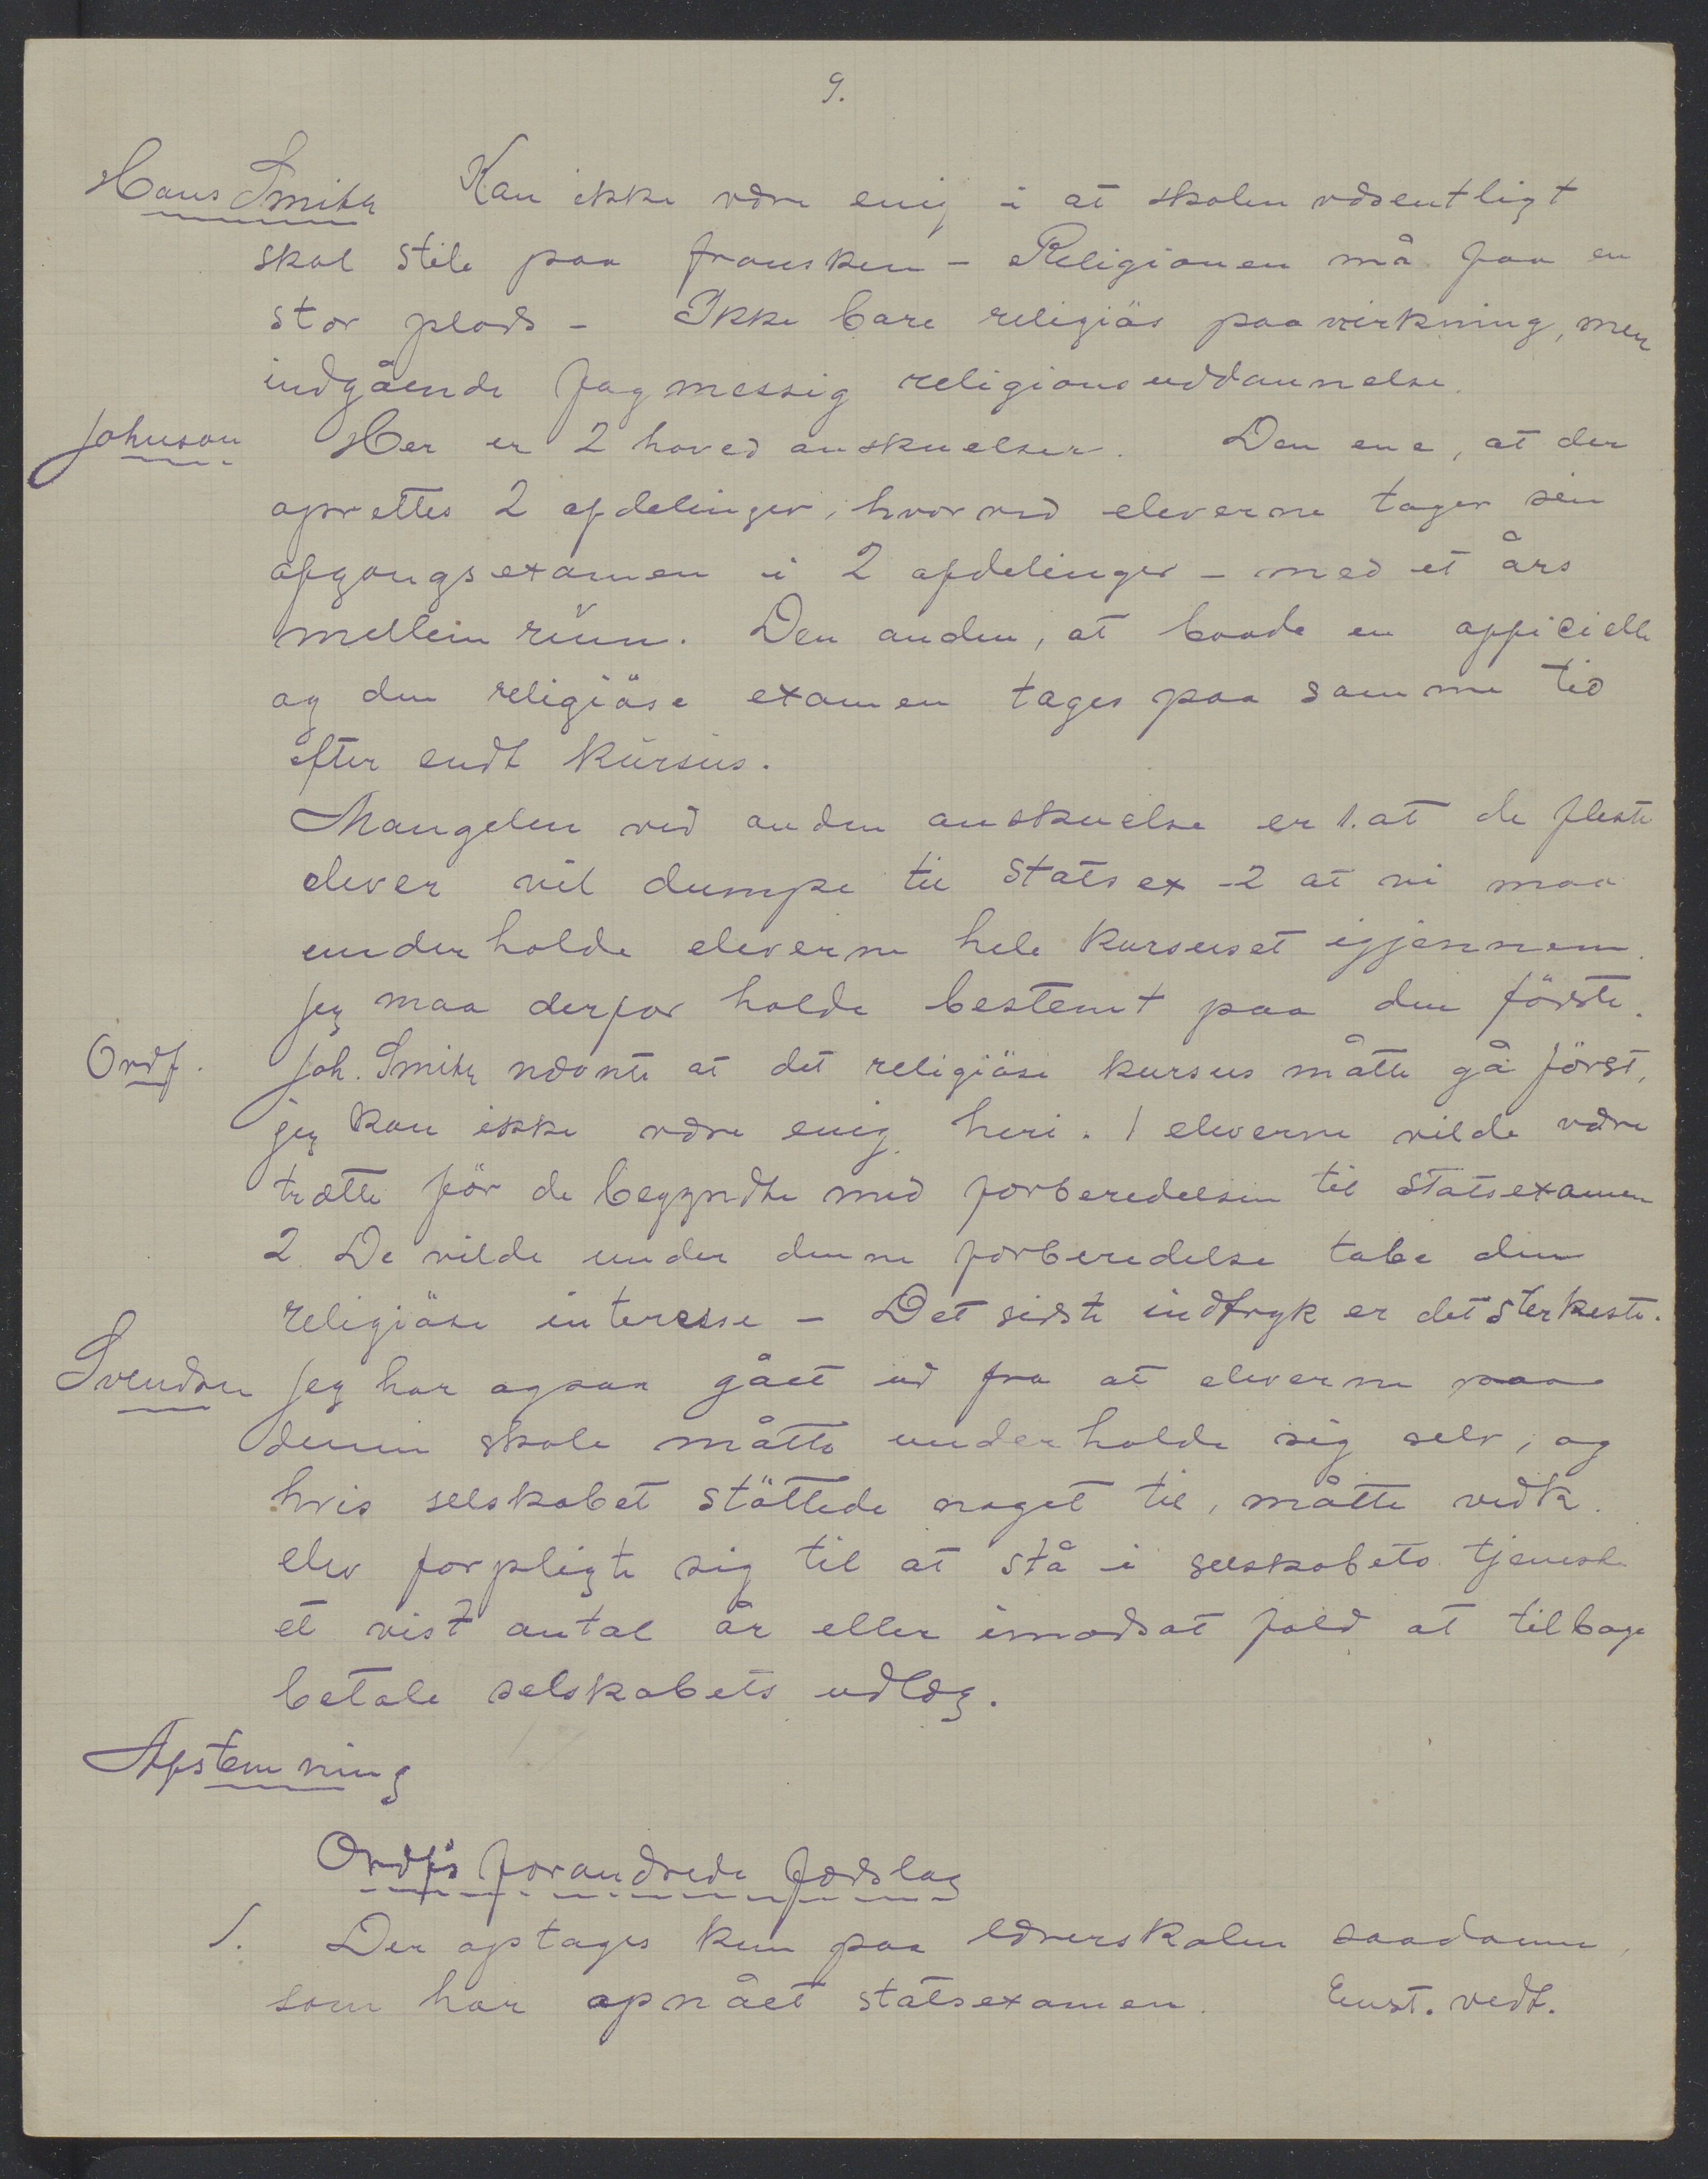 9.
Hans Smith Kan ikke være enig i at skolen væsentligt
skal stile paa fransken - Religionen må faa en
stor plads - Ikke bare religiös paavirkning, men
indgående fagmessig religionsuddannelse.
Johnson Her er 2 hovedanskuelser. Den ene, at der
oprettes 2 afdelinger, hvorved eleverne tager sin
afgangsexamen i 2 afdelinger - med et års
mellem rum. Den anden, at baade en officielle
og den religiöse examen tages paa samme tid
efter endt kursus.
Mangelen ved anden anskuelse er 1. at de fleste
elever vil dumpe til Statsex - 2 at vi maa
underholde eleverne hele kursuset igjennem.
Jeg maa derfor holde bestemt paa den förste.
Ordf. Joh. Smith nævnte at det religiöse kursus måtte gå först,
jeg kan ikke være enig heri. 1 eleverne vilde være
trætte för de begyndte med forberedelsen til Statsexamen
2. De vilde under denne forberedelse tabe den
religiöse interesse - Det sidste indtryk er det sterkeste.
Svendsen Jeg har ogsaa gået ud fra at eleverne paa
denne skole måtte underholde sig selv, og
hvis selskabet stöttede noget til, måtte vedk.
elev forpligte sig til at stå i selskabets tjeneste
et vist antal år eller i modsat fald at tilbage
betale selskabets udlæg.
Afstemning
Ordf's forandrede forslag
1. Der optages kun paa lærerskolen saadanne,
som har opnået statsexamen. Enst. vedt.